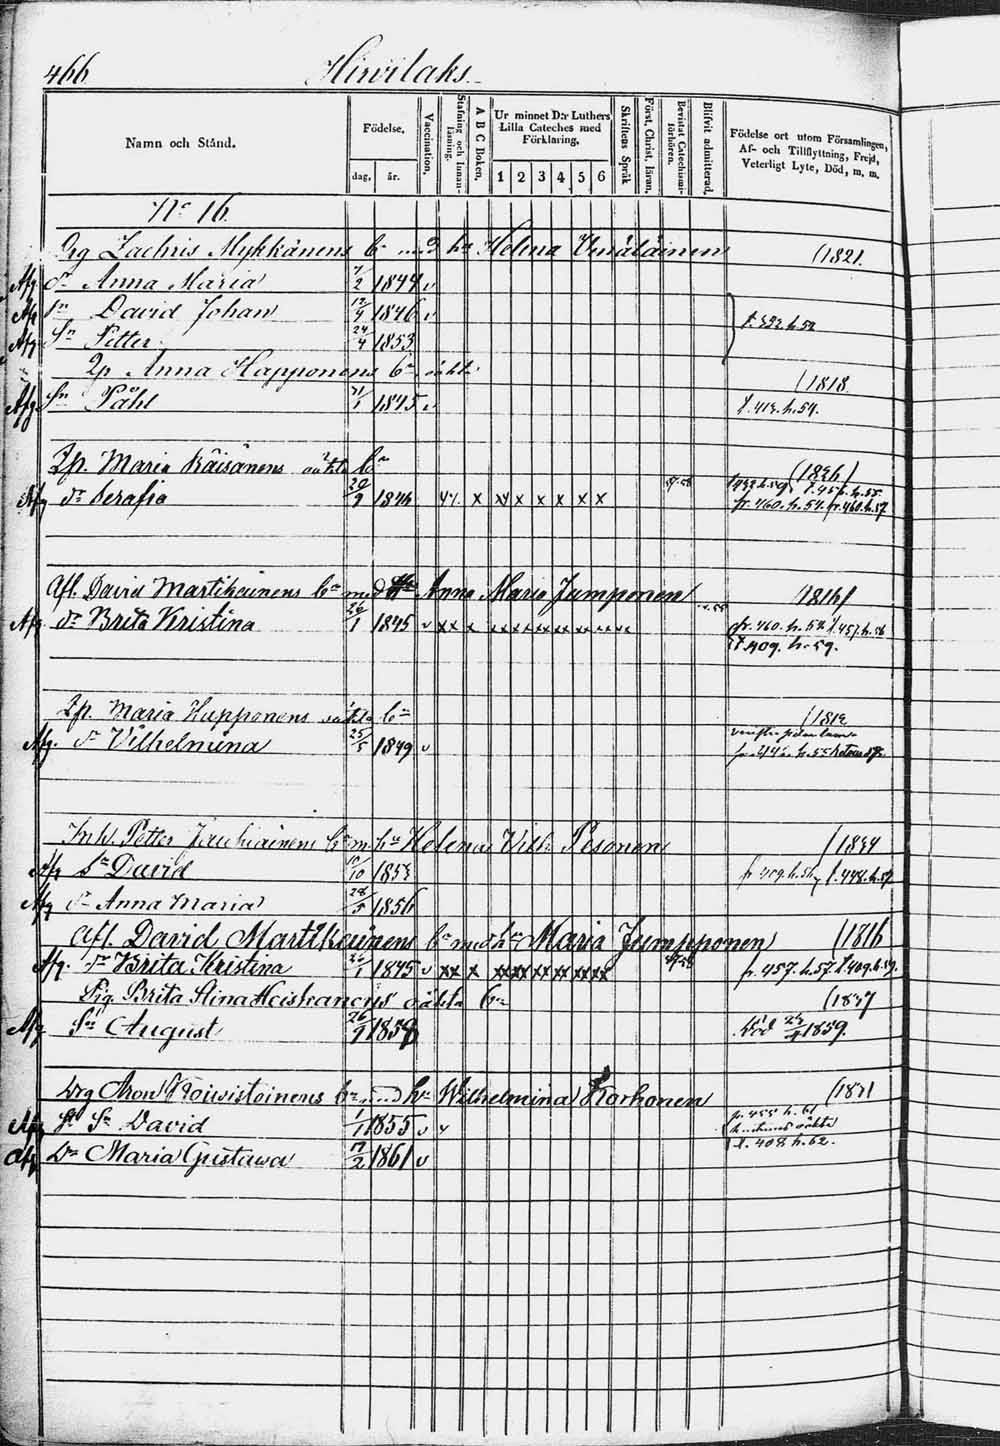 466.
Hirvilaks.
Namn och Stånd.
Födelse.
dag. år.
Vaccination.
Stafning och Innanläsning.
A B C Boken.
Ur minnet D:r Luthers Lilla Cateches med Förklaring.
1 2 3 4 5 6
Skriftens Språk
Först. Christ. läran.
Bevistat Catechismiförhören.
Blifvit admitterad.
Födelse ort utom Församlingen,
Af- och Tillflyttning, Frejd,
Veterligt Lyte, Död, m. m.
No 16.
Zachris Mykkänens bn med hu Helena (1821.
Afg dr Anna Maria 7/2 1844 v
Afg Sn David Johan 12/9 1846 v
Afg Sn Petter 24/4 1853
2p Anna Happonens bn oäkta (1818.
Afg Sn Påhl 1845 v f. 413. h. 54.
Maria Räisänens oäkta bn (1826)
Afg dr Serafia 20/9 1846 x x x x x x x
fr. 460. h. 54. fr. 460. h. 57
Afl. David Martikainens bn med Hu Anna Maria Jumponen 1816)
Afg dr Brita Kristina 26/1 1845 v xx x fr. 460. h. 54. f. 457. h. 56
f. 409. h. 59.
Maria Happonens oäkta bn (1812
Afg. dr Vilhelmina 25/5 1849 v
Inh. Petter bn m hu Helena Vilh. Pesonen (1834
Afg Sn David /10 1853 fr 409. h. 56, f. 448. h. 57
Afg dr Anna Maria 28/5 1856
Afl. David Martikainens bn med hu Maria Jumpponen (1816
Afg. dr Brita Kristina 26/1 1845 v xx x fr. 457. h. 57. f. 409. h. 59.
Pig. Brita Stina Heiskanens oäkta bn (1837
Afg Sn August 26/9 1858 död 23/4 1859.
Drg Aron Koivistoinens bn med hu Wilhelmina Korhonen (1831
fr. 455 h. 61
Afg Sn David 1/1 1855 v
Afg Dr Maria Gustava 17/2 1861 v f. 408. h. 62.